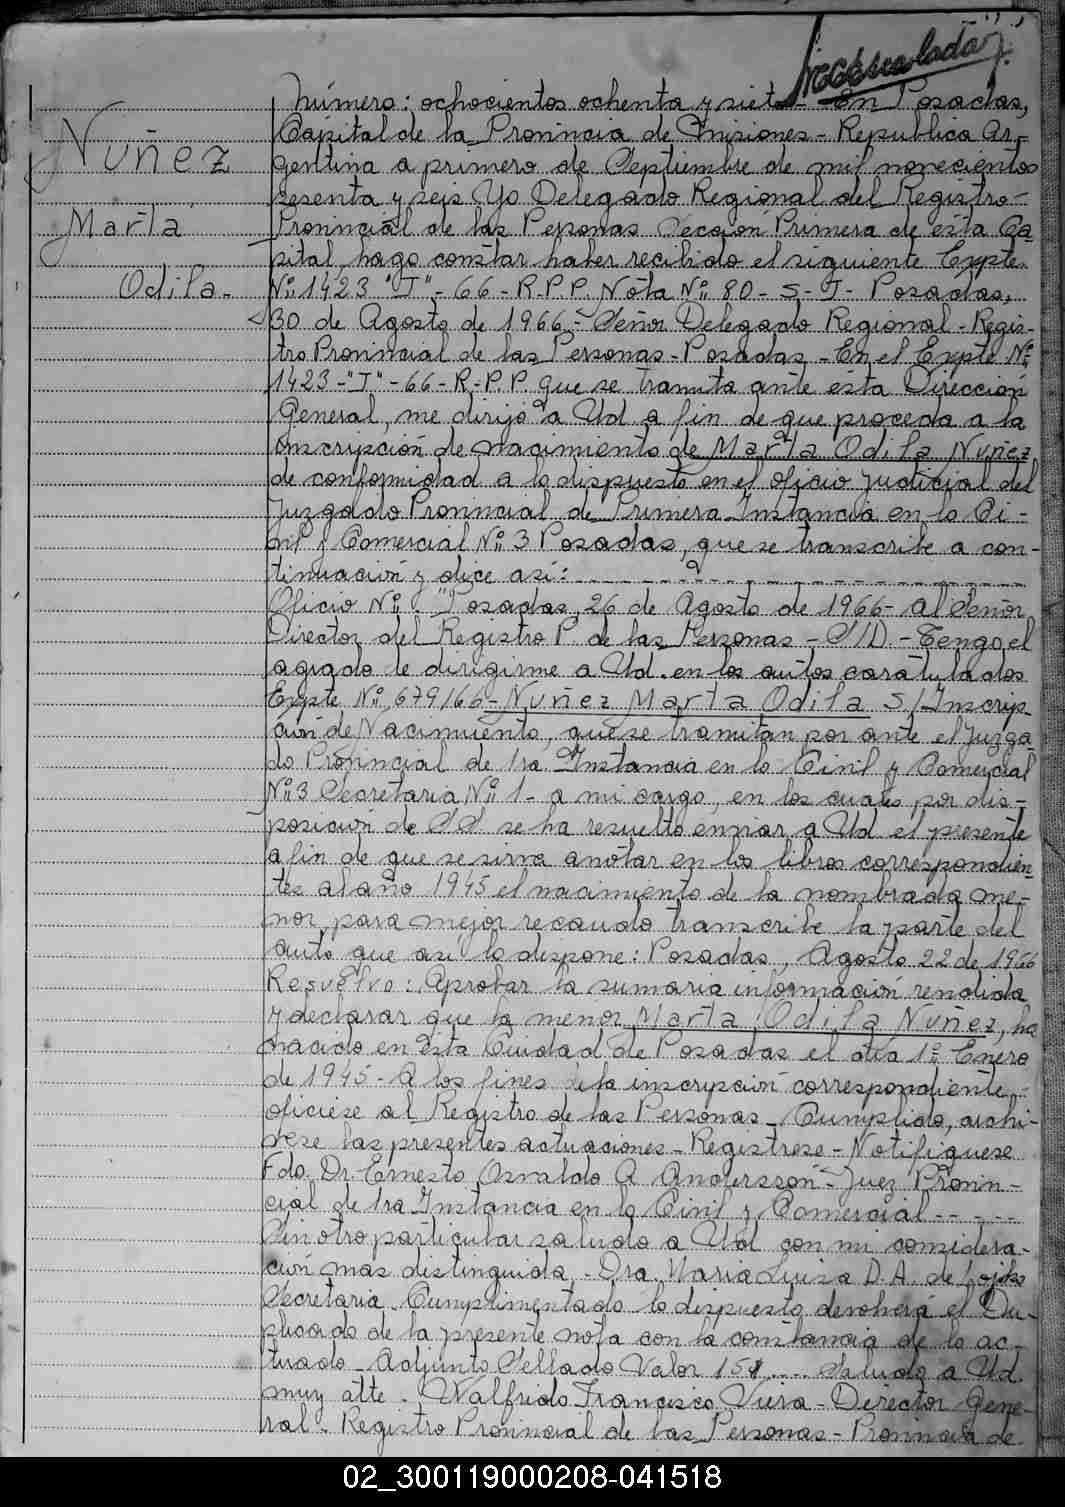 Número: ochocientos ochenta y siete - En Posadas,
Capital de la Provincia de Misiones - Republica Ar-
gentina a primero de Septiembre de mil novecientos
sesenta y seis Yo Delegado Regional del Registro
Provincial de las Personas Sección Primera de esta Ca-
pital, hago constar haber recibido el siguiente Expte.
Nº 1423 "J" - 66 - R.P.P. Nota Nº 80 - S - J - Posadas,
30 de Agosto de 1966 - Señor Delegado Regional - Regis-
tro Provincial de las Personas - Posadas - En el Expte Nº
1423 - "J" - 66 - R.P.P. que se tramita ante esta Direccion
General, me dirijo a Ud a fin de que proceda a la
inscripción de nacimiento de Marta Odila Nuñez
de conformidad a lo dispuesto en el oficio judicial del
Juzgado Provincial de Primera Instancia en lo Ci-
vil y Comercial Nº 3 Posadas, que se transcribe a con-
tinuación y dice así:
Oficio Nº . "Posadas, 26 de Agosto de 1966 - Al Señor
Director del Registro P. de las Personas - S/D. - Tengo el
agrado de dirigirme a Ud. en los autos caratulados
Expte Nº 679/66 - Nuñez Marta Odila S/Inscrip-
ción de Nacimiento, que se tramitan por ante el Juzga-
do Provincial de 1ra Instancia en lo Civil y Comercial
Nº 3 Secretaria Nº 1 - a mi cargo, en los cuales por dis-
posición de SS. se ha resuelto enviar a Ud el presente
a fin de que se sirva anotar en los libros correspondien-
tes al año 1945 el nacimiento de la nombrada me-
nor, para mejor recaudo transcribe la parte del
auto que así lo dispone: Posadas, Agosto 22 de 1966
Resuelvo: Aprobar la sumaria información rendida
y declarar que la menor Marta Odila Nuñez, ha
nacido en esta Ciudad de Posadas el día 1º Enero
de 1945 - A los fines de la inscripción correspondiente
oficiese al Registro de las Personas - Cumplido, archi-
vese las presentes actuaciones - Registrese - Notifiquese
Fdo. Dr. Ernesto Osvaldo A Andersson - Juez Provin-
cial de 1ra Instancia en lo Civil y Comercial
Sin otro particular saludo a Ud con mi considera-
ción mas distinguida - Dra. Maria Luisa D. A. de
Secretaria. Cumplimentado lo dispuesto devolverá el Du-
plicado de la presente nota con la constancia de lo ac-
tuado - Adjunto Sellado Valor 15 Saludo a Ud.
muy atte. Walfrido Francisco Viera - Director Gene-
ral - Registro Provincial de las Personas - Provincia de
Nuñez
Marta
Odila -
02_300119000208-041518